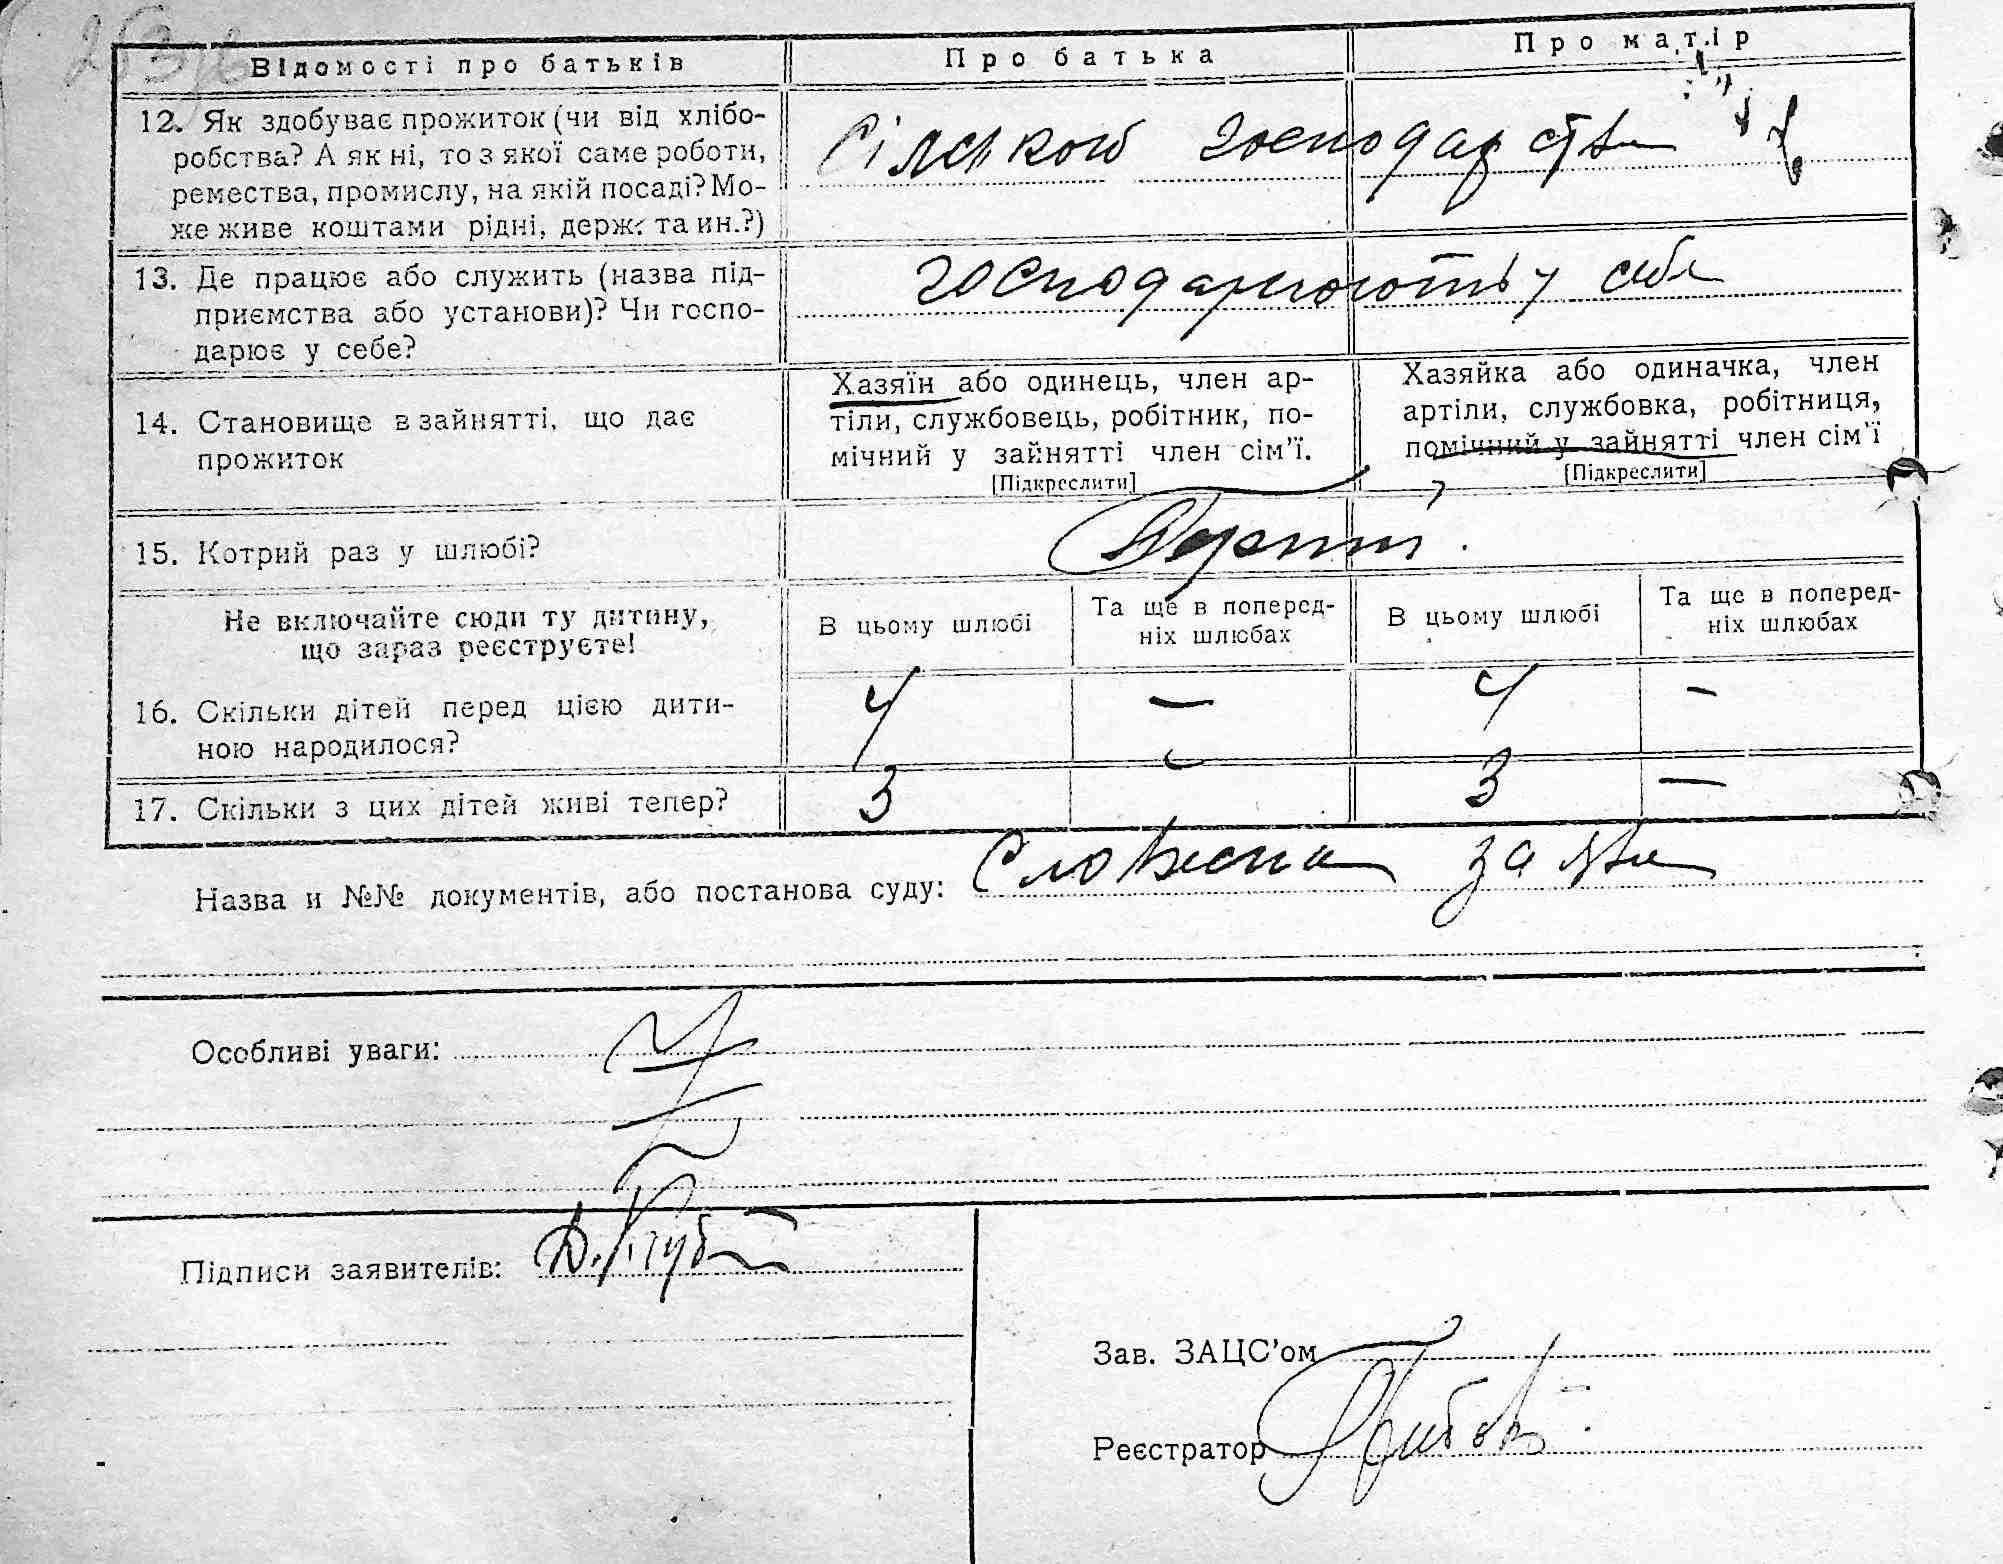 Відомості про батьків Про батька Про матір
12. Як здобуває прожиток (чи від хлібо-
робства? А як ні, то з якої саме роботи,
ремества, промислу, на якій посаді? Мо-
же живе коштами рідні, держ. та ин.?)
Сілском господарства
13. Де працює або служить (назва під-
приємства або установи)? Чи госпо-
дарює у себе?
господарюють у себе
14. Становище в зайнятті, що дає
прожиток
Хазяїн або одинець, член ар-
тіли, службовець, робітник, по-
мічний у зайнятті член сім'ї.
[Підкреслити]
Хазяйка або одиначка, член
артіли, службовка, робітниця,
помічний у зайнятті член сім'ї
[Підкреслити]
15. Котрий раз у шлюбі?
Не включайте сюди ту дитину,
що зараз реєструєте!
В цьому шлюбі
Та ще в поперед-
ніх шлюбах
В цьому шлюбі
Та ще в поперед-
ніх шлюбах
16. Скільки дітей перед цією дити-
ною народилося?
4 — 4 —
17. Скільки з цих дітей живі тепер?
3 - 3 —
Назва и №№ документів, або постанова суду: Словесна заява
Особливі уваги:
Підписи заявителів:
Зав. ЗАЦС'ом
Реєстратор